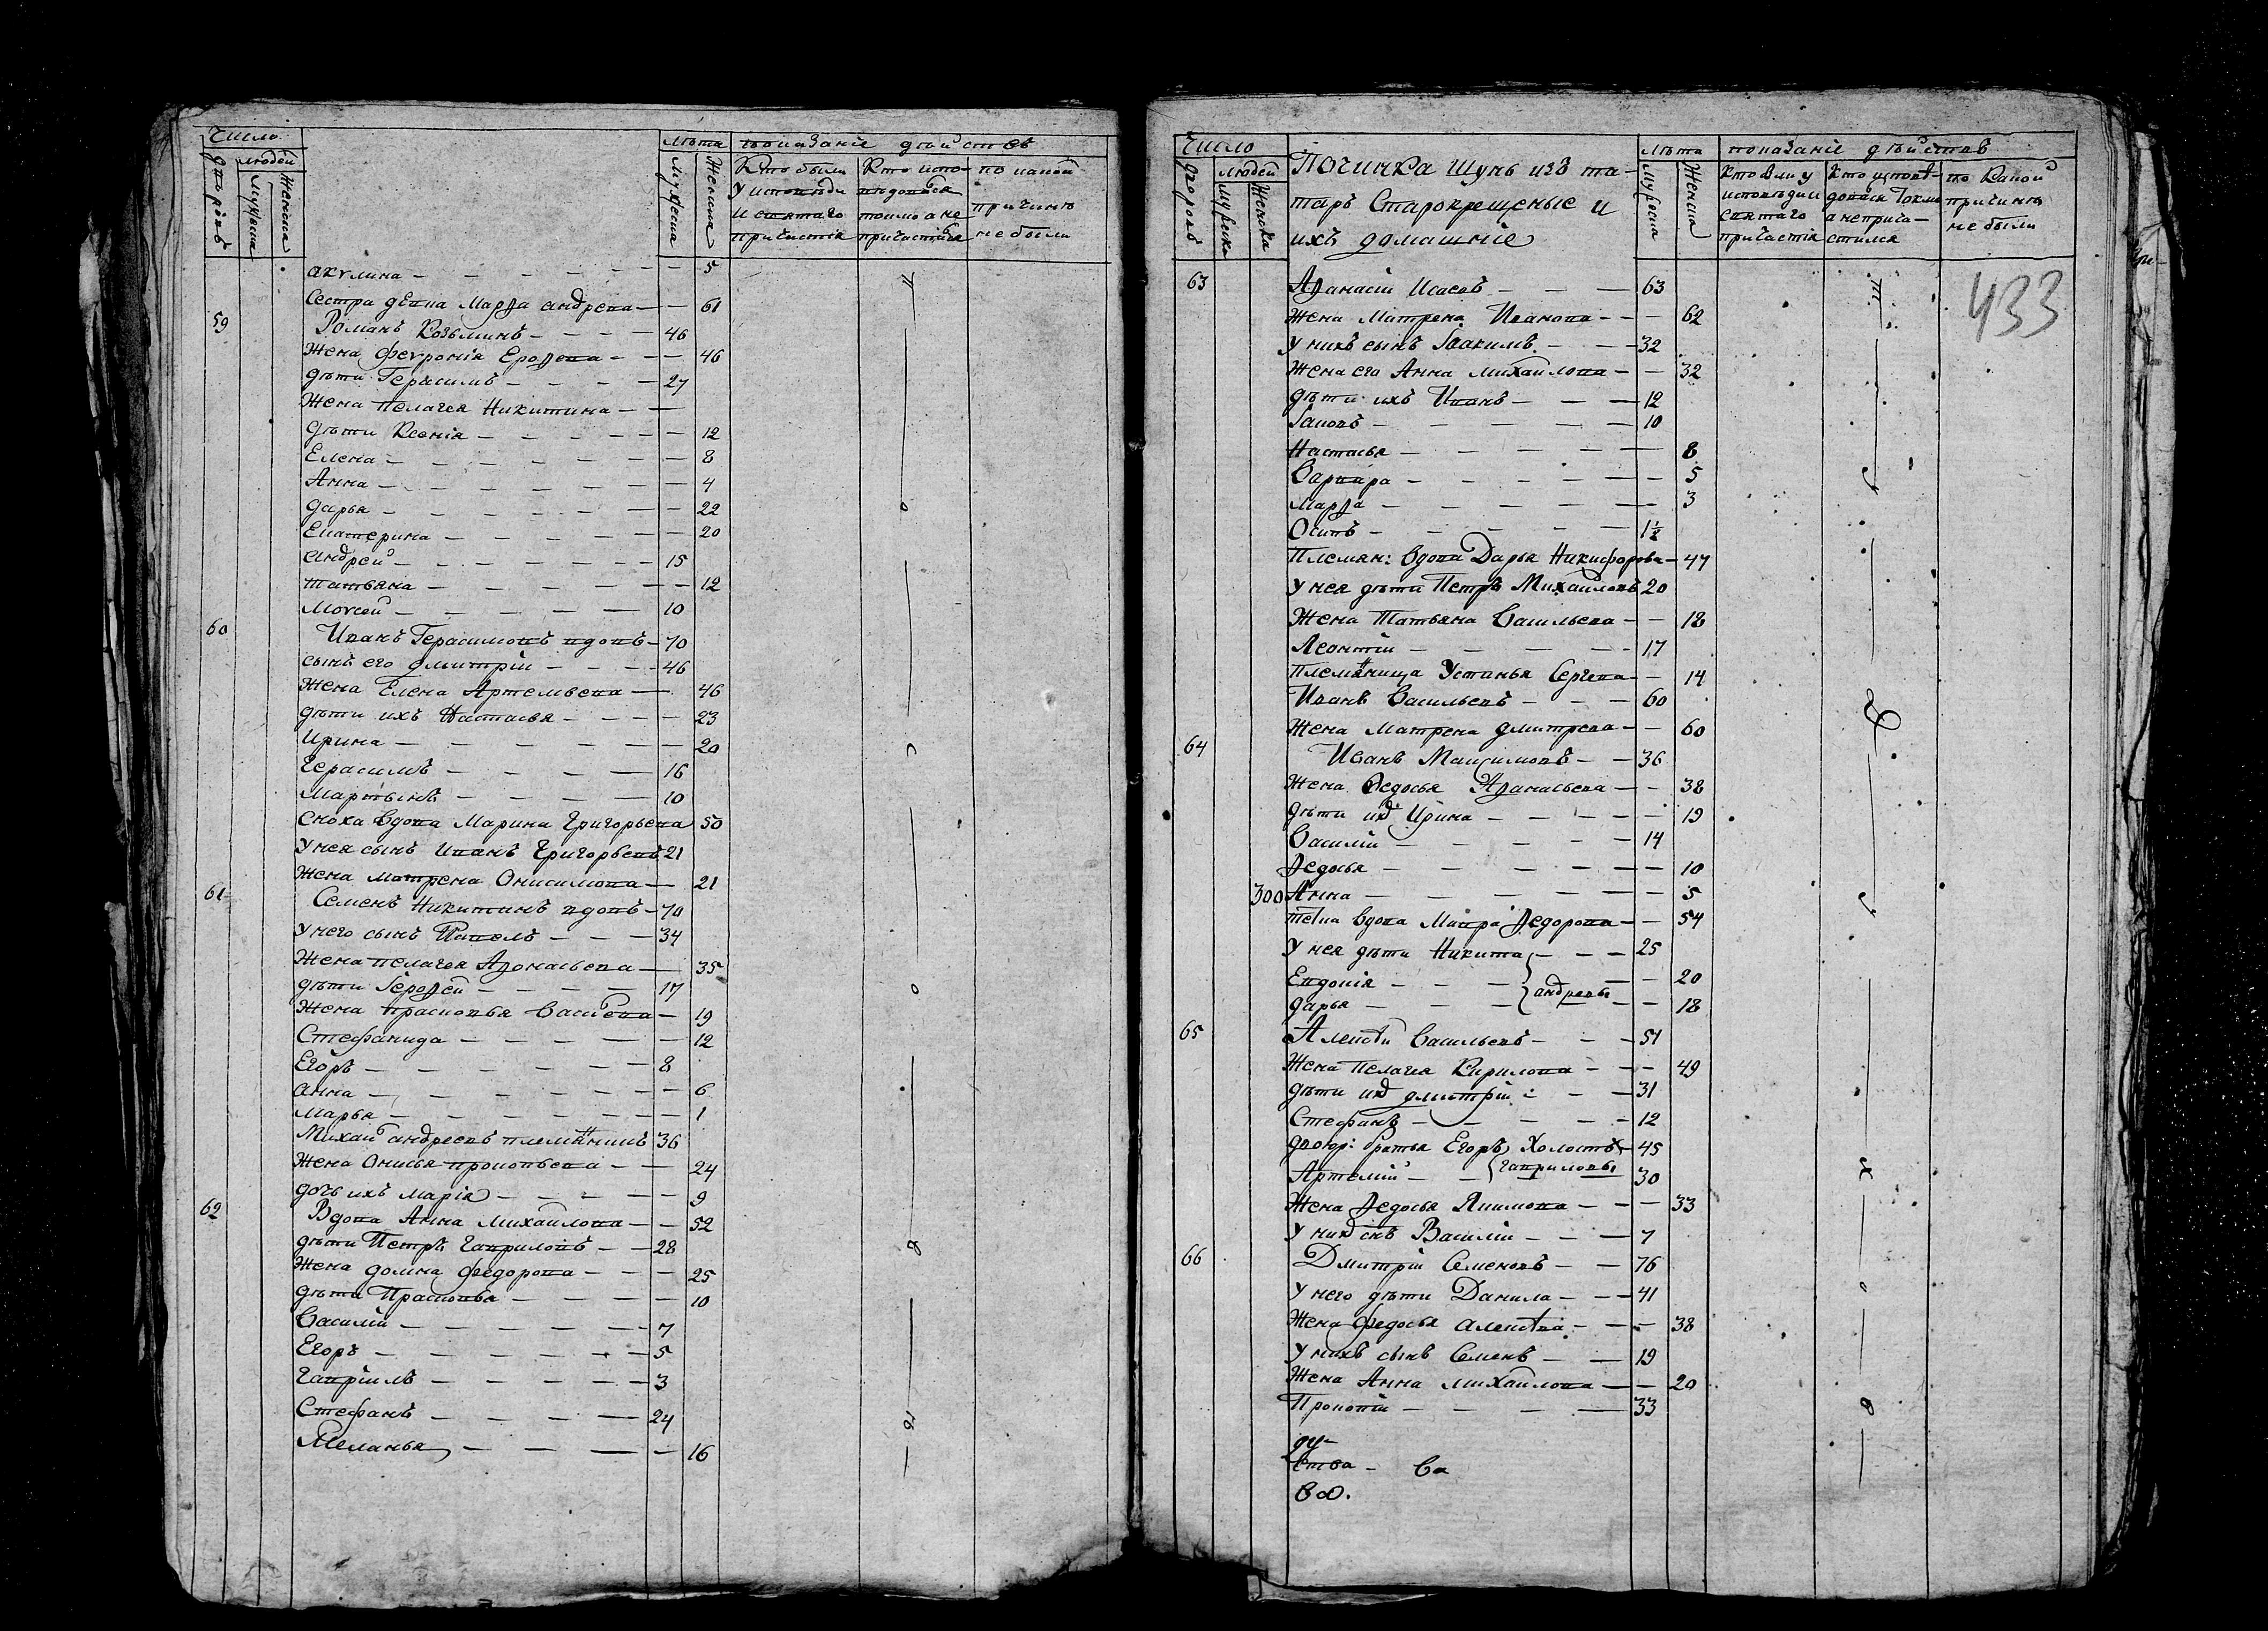 Число
людей
дворовъ
мужеска
женска
лѣта
мужеска
женска
показаніе дѣйствъ
Кто были у исповѣди и святаго причастія
Кто исповѣдовался токмо а не причастился
по какой причинѣ не были
акулина — 5
Сестра Марѳа андреева — 61
59 Романъ Козьминъ — 46
Жена февронія Ероѳеева — 46
дѣти Герасимъ — 27
Жена Пелагея Никитина —
дѣти Ксенія — 12
Елена — 8
Анна — 4
дарья — 22
Екатерина — 20
андрей — 15
татьяна — 12
Моѵсей — 10
60 Иванъ Герасимовъ вдовъ — 70
сынъ его дмитрій — 46
Жена Елена Артемьева — 46
дѣти ихъ Настасья — 23
Ирина — 20
Герасимъ — 16
Мартынъ — 10
сноха вдова Марина Григорьева 50
У нея сынъ Иванъ Григорьевъ 21
Жена матрена Онисимова — 21
61 Семенъ Никитинъ вдовъ — 70
У него сынъ Павелъ — 34
Жена пелагея Аѳонасьева — 35
дѣти Іероѳей — 17
Жена Прасковья — 19
Стефанида — 12
Егоръ — 8
анна — 6
Марья — 1
Михаи андреевъ племянникъ 36
Жена Онисья прокопьева — 24
дочь ихъ марія — 9
62 Вдова Анна Михаилова — 52
дѣти Петръ Гавриловъ — 28
Жена домна федорова — 25
дѣти Прасковья — 10
Василій — 7
Егоръ — 5
Гавріилъ — 3
Стефанъ — 24
Меланья — 16
Число
людей
дворовъ
мужеска
женска
Починка Шунь изъ та-
таръ Старокрещеные и
ихъ домашніе
лѣта
мужеска
женска
показаніе дѣйствъ
Кто были у исповѣди и святаго причастія
Кто исповѣдовался токмо а не причастился
по какой причинѣ не были
433
63 Аѳанасій Исаевъ — 63
Жена Матрена Иванова — 62
У нихъ сынъ Іоакимъ — 32
Жена его Анна михаилова — 32
дѣти ихъ Иванъ — 12
Іаковъ — 10
Настасья — 8
Варвара — 5
Марѳа — 3
Осипъ — 1½
Племян: вдова Дарья Никифорова — 47
У нея дѣти Петръ Михаиловъ 20
Жена Татьяна Васильева — 18
Леонтій — 17
Племяница Устинья Сергеева — 14
Иванъ Васильевъ — 60
Жена Матрена дмитрева — 60
64 Иванъ Максимовъ — 36
Жена Ѳедосья Аѳанасьева — 38
дѣти их Ирина — 19
Василій — 14
Ѳедосья — 10
300 Анна — 5
вдова Мавра Ѳедорова — 54
У нея дѣти Никита — 25
Евдокія — 20
дарья — 18
андревы
65 Алексѣй Васильевъ — 51
Жена Пелагея Кирилова — 49
дѣти их дмитрій — 31
Стефанъ — 12
двоюр: братья Егоръ Холостъ — 45
Артемій — 30
гавриловы
Жена Ѳедосья Якимова — 33
У них снъ Василій — 7
66 Дмитрій Семеновъ — 76
У него дѣти Данила — 41
Жена федосья алексѣва — 38
У нихъ сынъ Семенъ — 19
Жена Анна михаилова — 20
Прокопій — 33
ду-
ства — ва